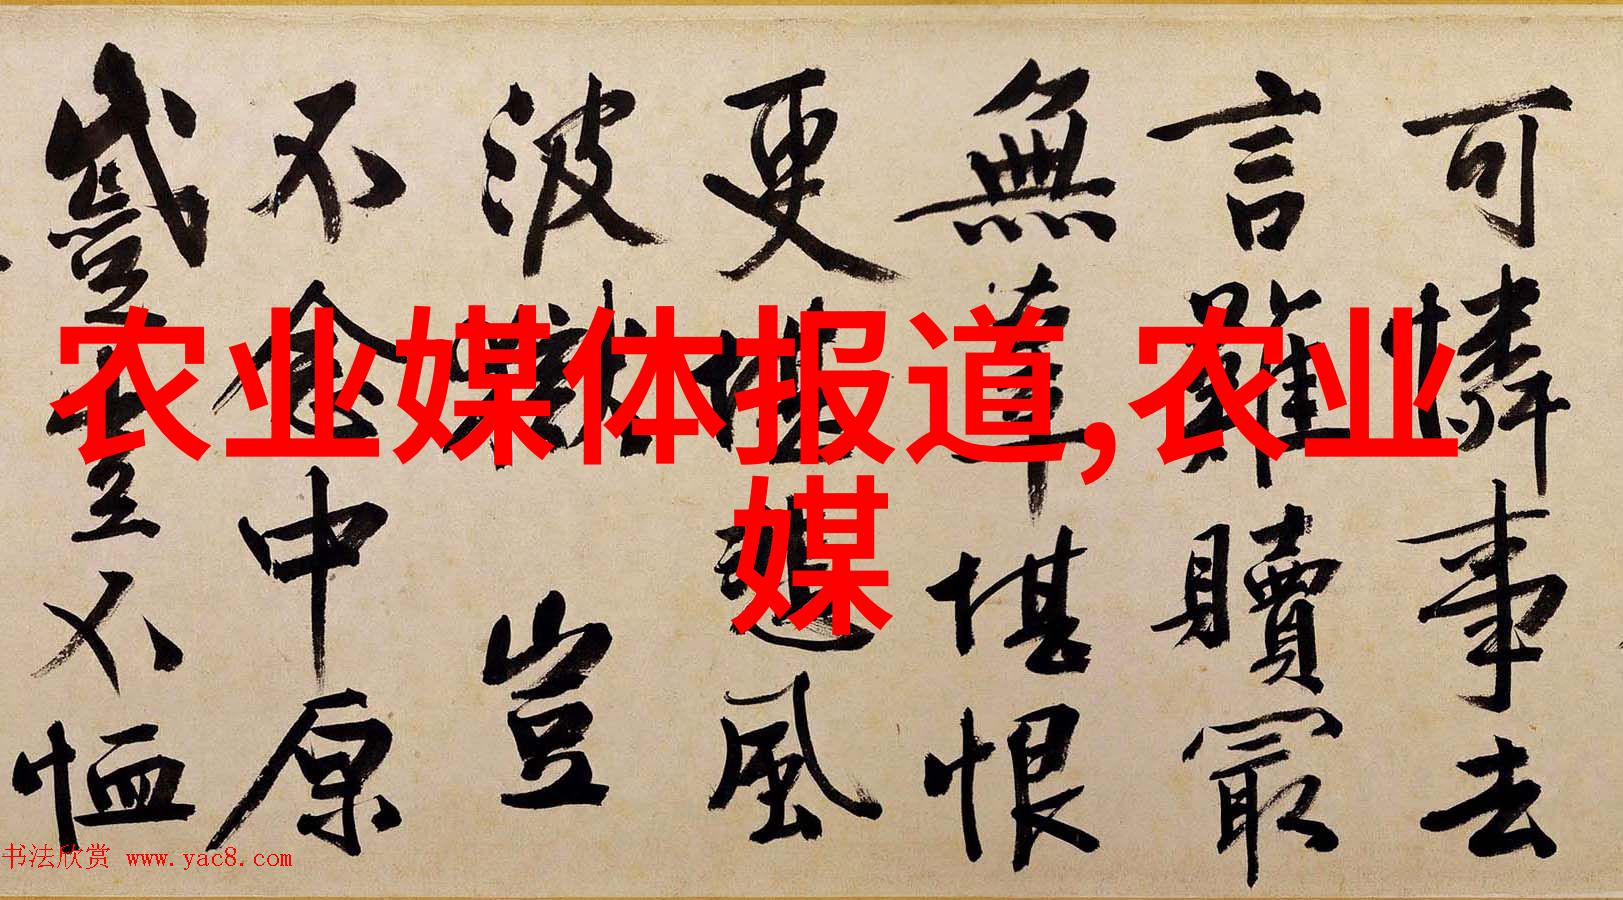 农业媒体报道,农业
媒
可憐事去
言難贖冣
無辜堪恨
更堪悲風
波獄豈
不念中原
蹙豈不恤
书法欣赏 www.yac8.com